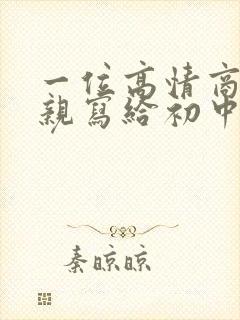 一位高情商
親寫給初中
秦晾晾